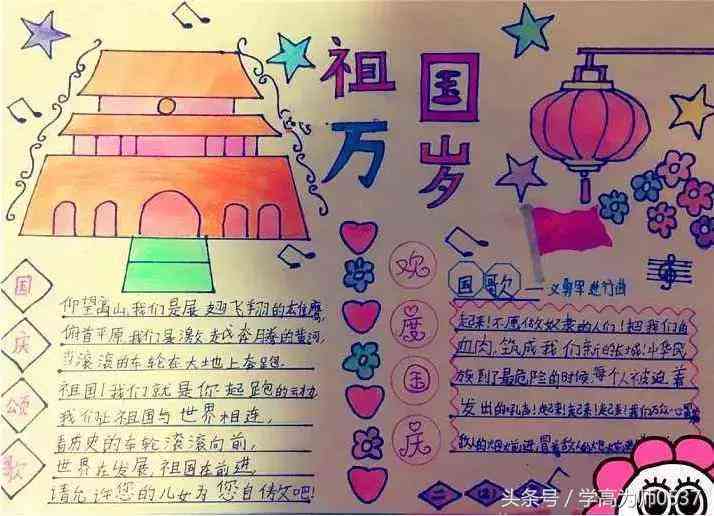 祖国
万岁
国庆颂歌
仰望高山我们是展翅飞翔的雄鹰,
俯首平原我们是激起奔腾的黄河,
当滚滚的车轮在大地上奔跑
祖国!我们就是你起跑的
我们让祖国与世界相连,
看历史的车轮滚滚向前,
世界在发展 祖国在前进,
请允许您的儿女为您自信吧!
欢度国庆
国歌——义勇军进行曲
起来!不愿做奴隶的人们!把我们的
血肉,筑成我们新的长城!中华民
族到了最危险的时候,每个人被迫着
发出的吼声!起来!起来!起来!我们万众一心
敌人的炮火前进,冒着敌人的炮火前进
二(2)
头条号/学高为师0537